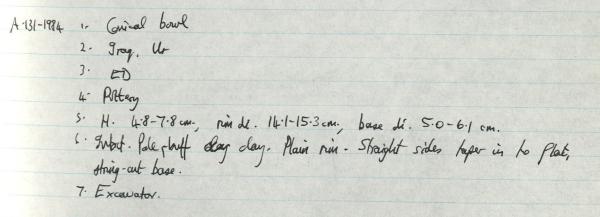 A.131-1984 1. Conical bowl
2. Iraq, Ur
3. ED
4. Pottery
5. H. 4.8-7.8cm, rim di. 14.1-15.3cm, base di. 5.0-6.1 cm.
6. Intact. Pale buff clay. Plain rim. Straight sides taper in to flat,
string-cut base.
7. Excavator.